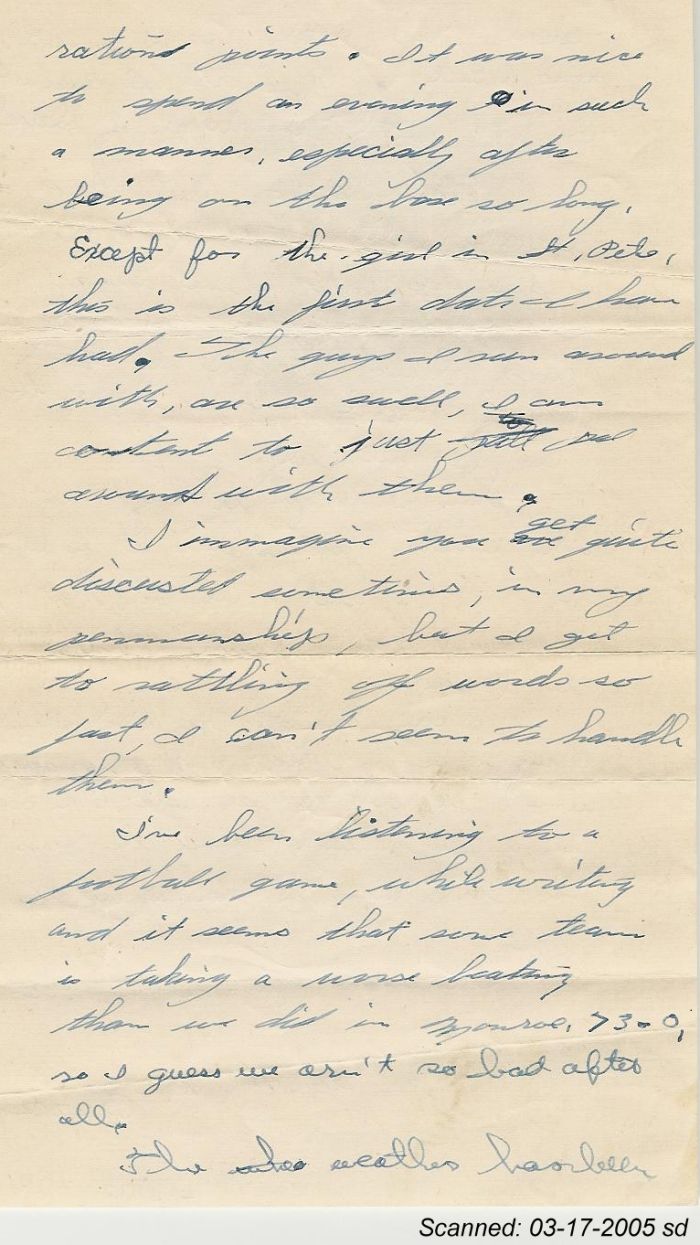 rations points. It was nice
to spend an evening in such
a manner, especially after
being on the base so long.
Except for the girl in St. Pete,
this is the first date I have
had. The guys I run around
with, are so swell, I am
content to just pal
around with them.
I immagine you get quite
discusted sometimes, in my
penmanship, but I get
to rattling off words so
fast, I can't seem to handle
them.
I've been listening to a
football game, while writing
and it seems that some team
is taking a worse beating
than we did in Monroe. 73-0,
so I guess we arn't so bad after
all.
The weather has been
Scanned: 03-17-2005 sd